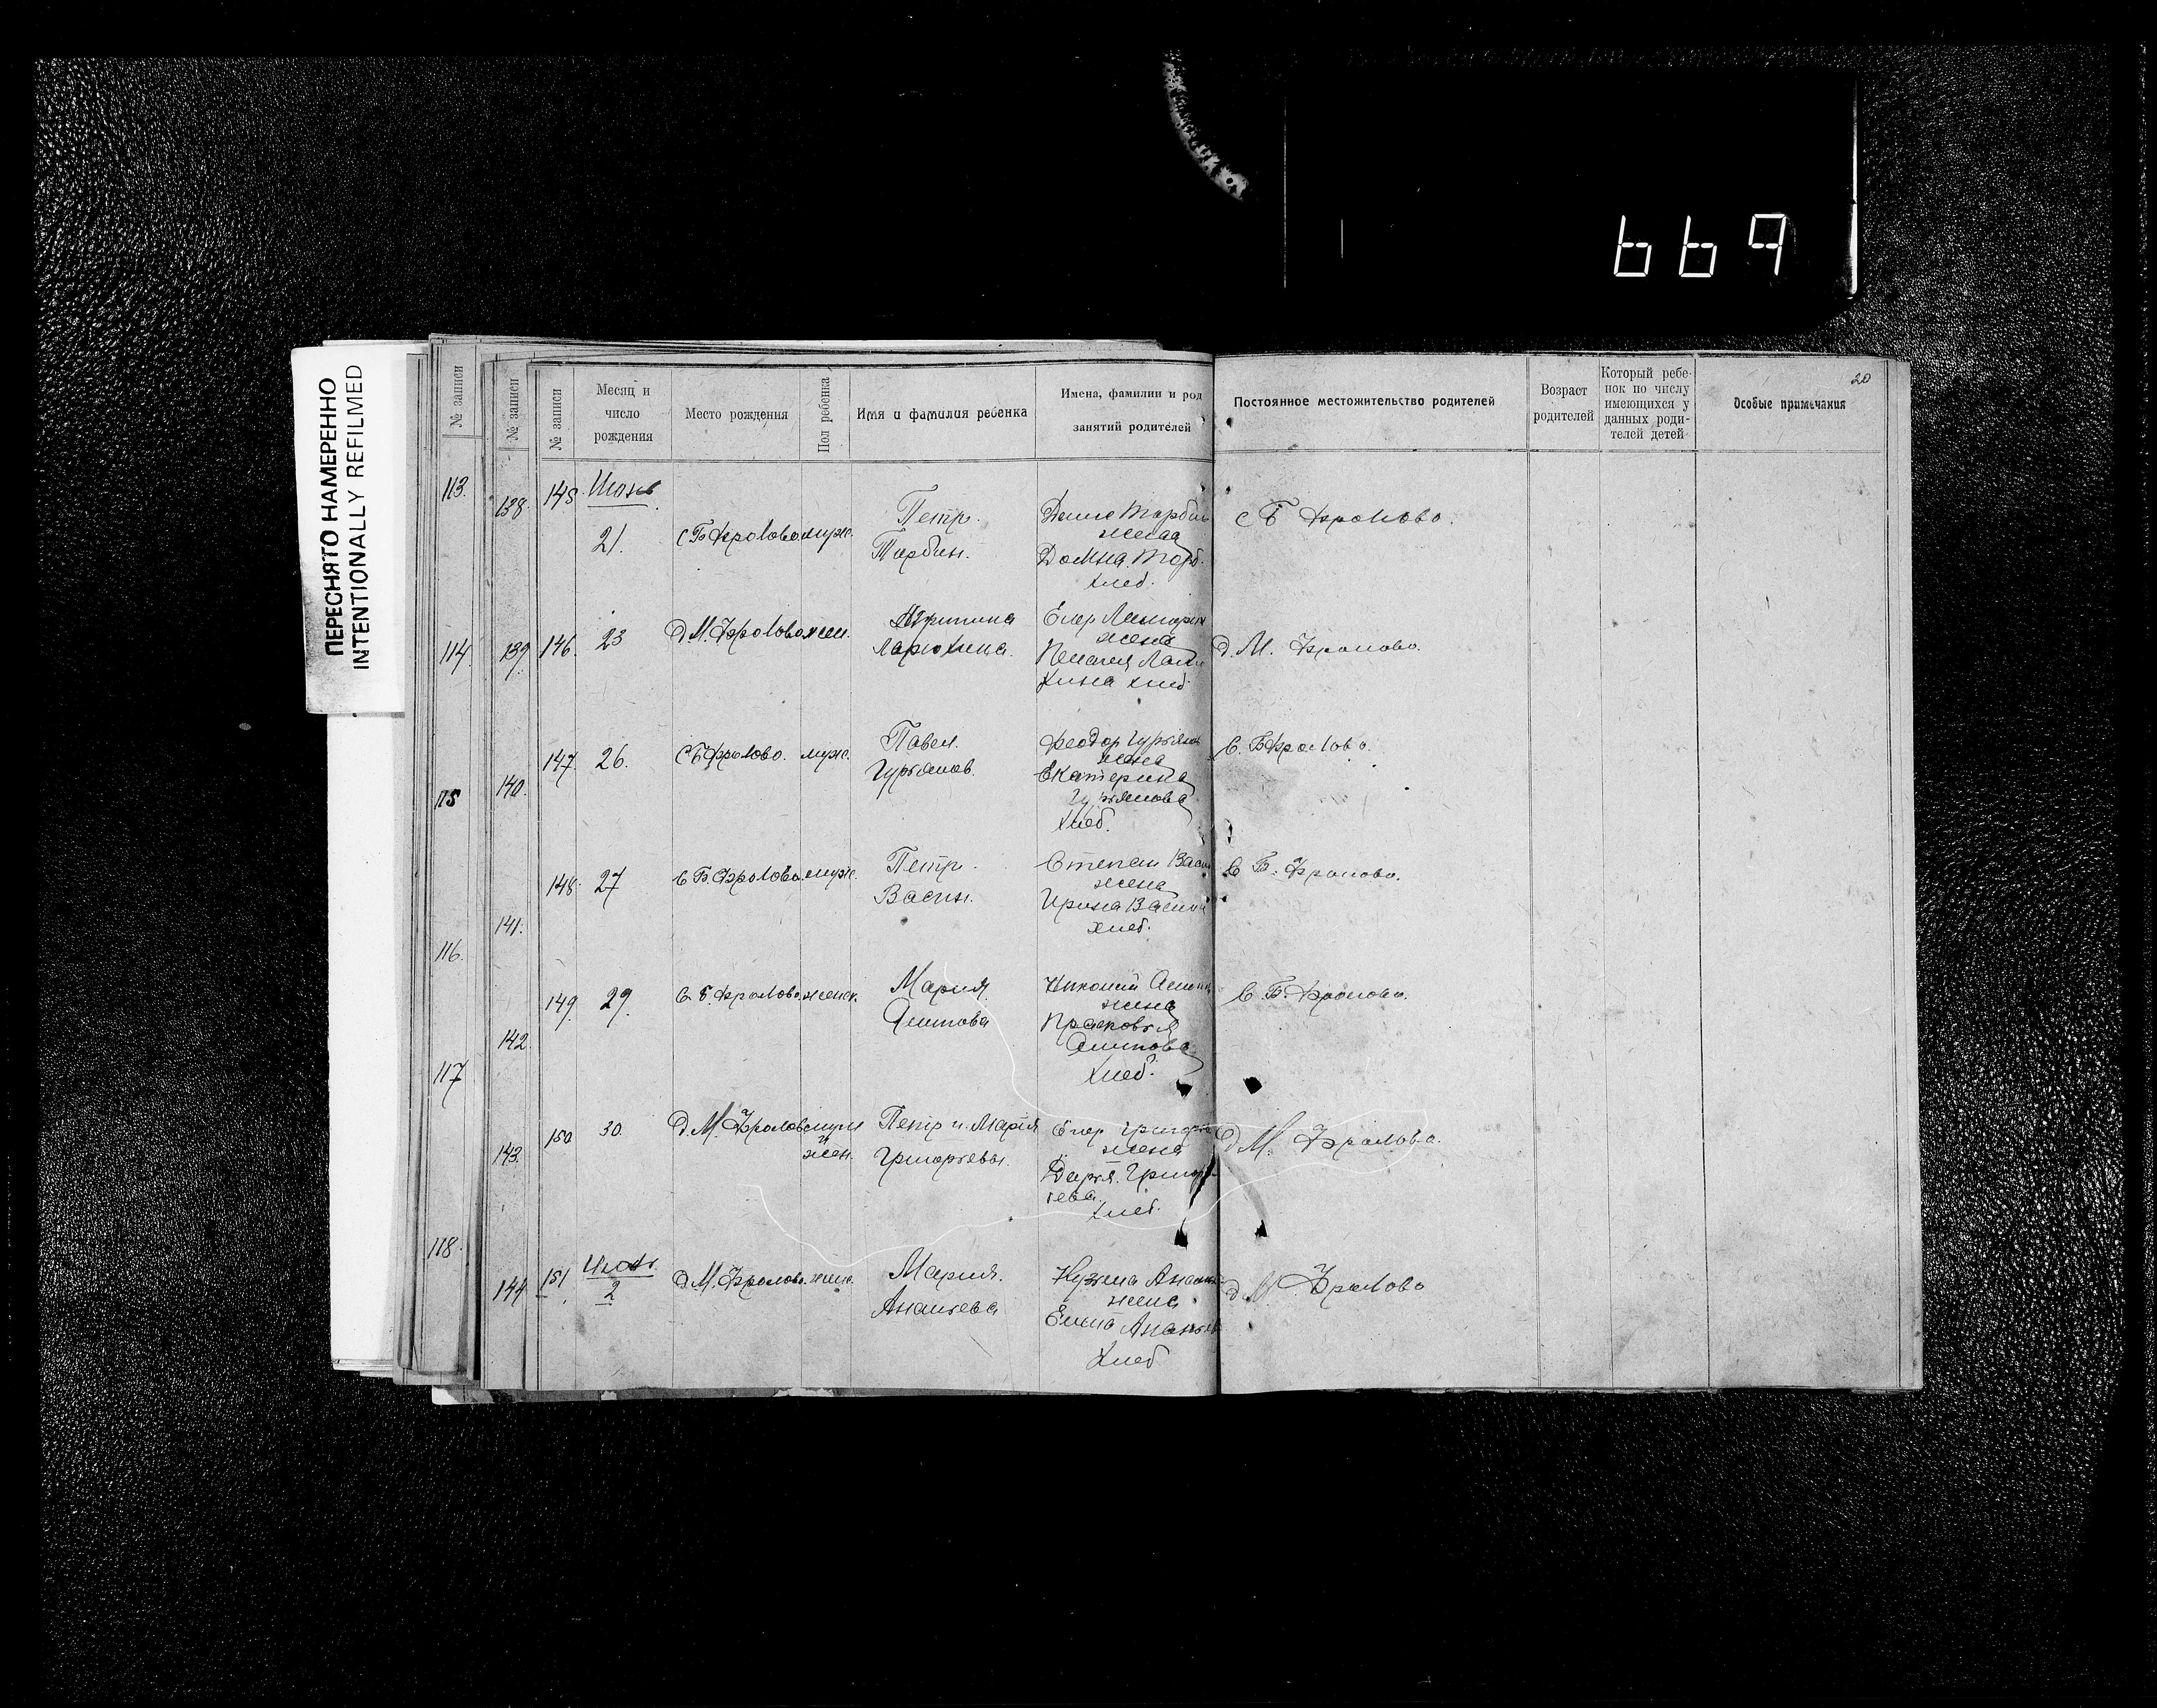 669
ПЕРЕСНЯТО НАМЕРЕННО
INTENTIONALLY REFILMED
20
№ записи
№ записи
№ записи
Месяц и число рождения
Место рождения
Пол ребенка
Имя и фамилия ребенка
Имена, фамилии и род
занятий родителей
Постоянное местожительство родителей
Возраст родителей
Который ребе-
нок по числу
имеющихся у
данных роди-
телей детей
Особые примечания
113.
114
115
116.
117
118.
138.
139.
140.
141.
142.
143.
144
145. Июнь
21. С Б Фролово муж.
Петр.
Тарбин.
жена
Домна
хлеб.
с Б Фролово.
146. 23 д М. Фролово жен.
Ларюхина.
Егор
жена
Пелагея
хина хлеб.
д. М. Фролово.
147. 26. С Б Фролово. муж.
Павел.
Гурьянов.
Феодор Гурьянов
жена
Екатерина
Гурьянова
хлеб.
С. Б Фролово.
148. 27 С Б. Фролово. муж.
Петр.
Васин.
Степан Васин
жена
Ирина
хлеб.
С Б. Фролово.
149. 29. С Б. Фролово. женск.
Мария.
Николай
жена
Прасковья
хлеб.
С. Б. Фролово.
150 30. Д. М. Фролово муж
и
жен.
Петр и Мария
Григорьевы.
Егор
жена
Дарья. Григорь-
ева.
хлеб.
д М. Фролово.
151. Июль.
2
д М. Фролово.
Мария.
Ананьева
Кузьма
жена
Елена
Хлеб
д М Фролово